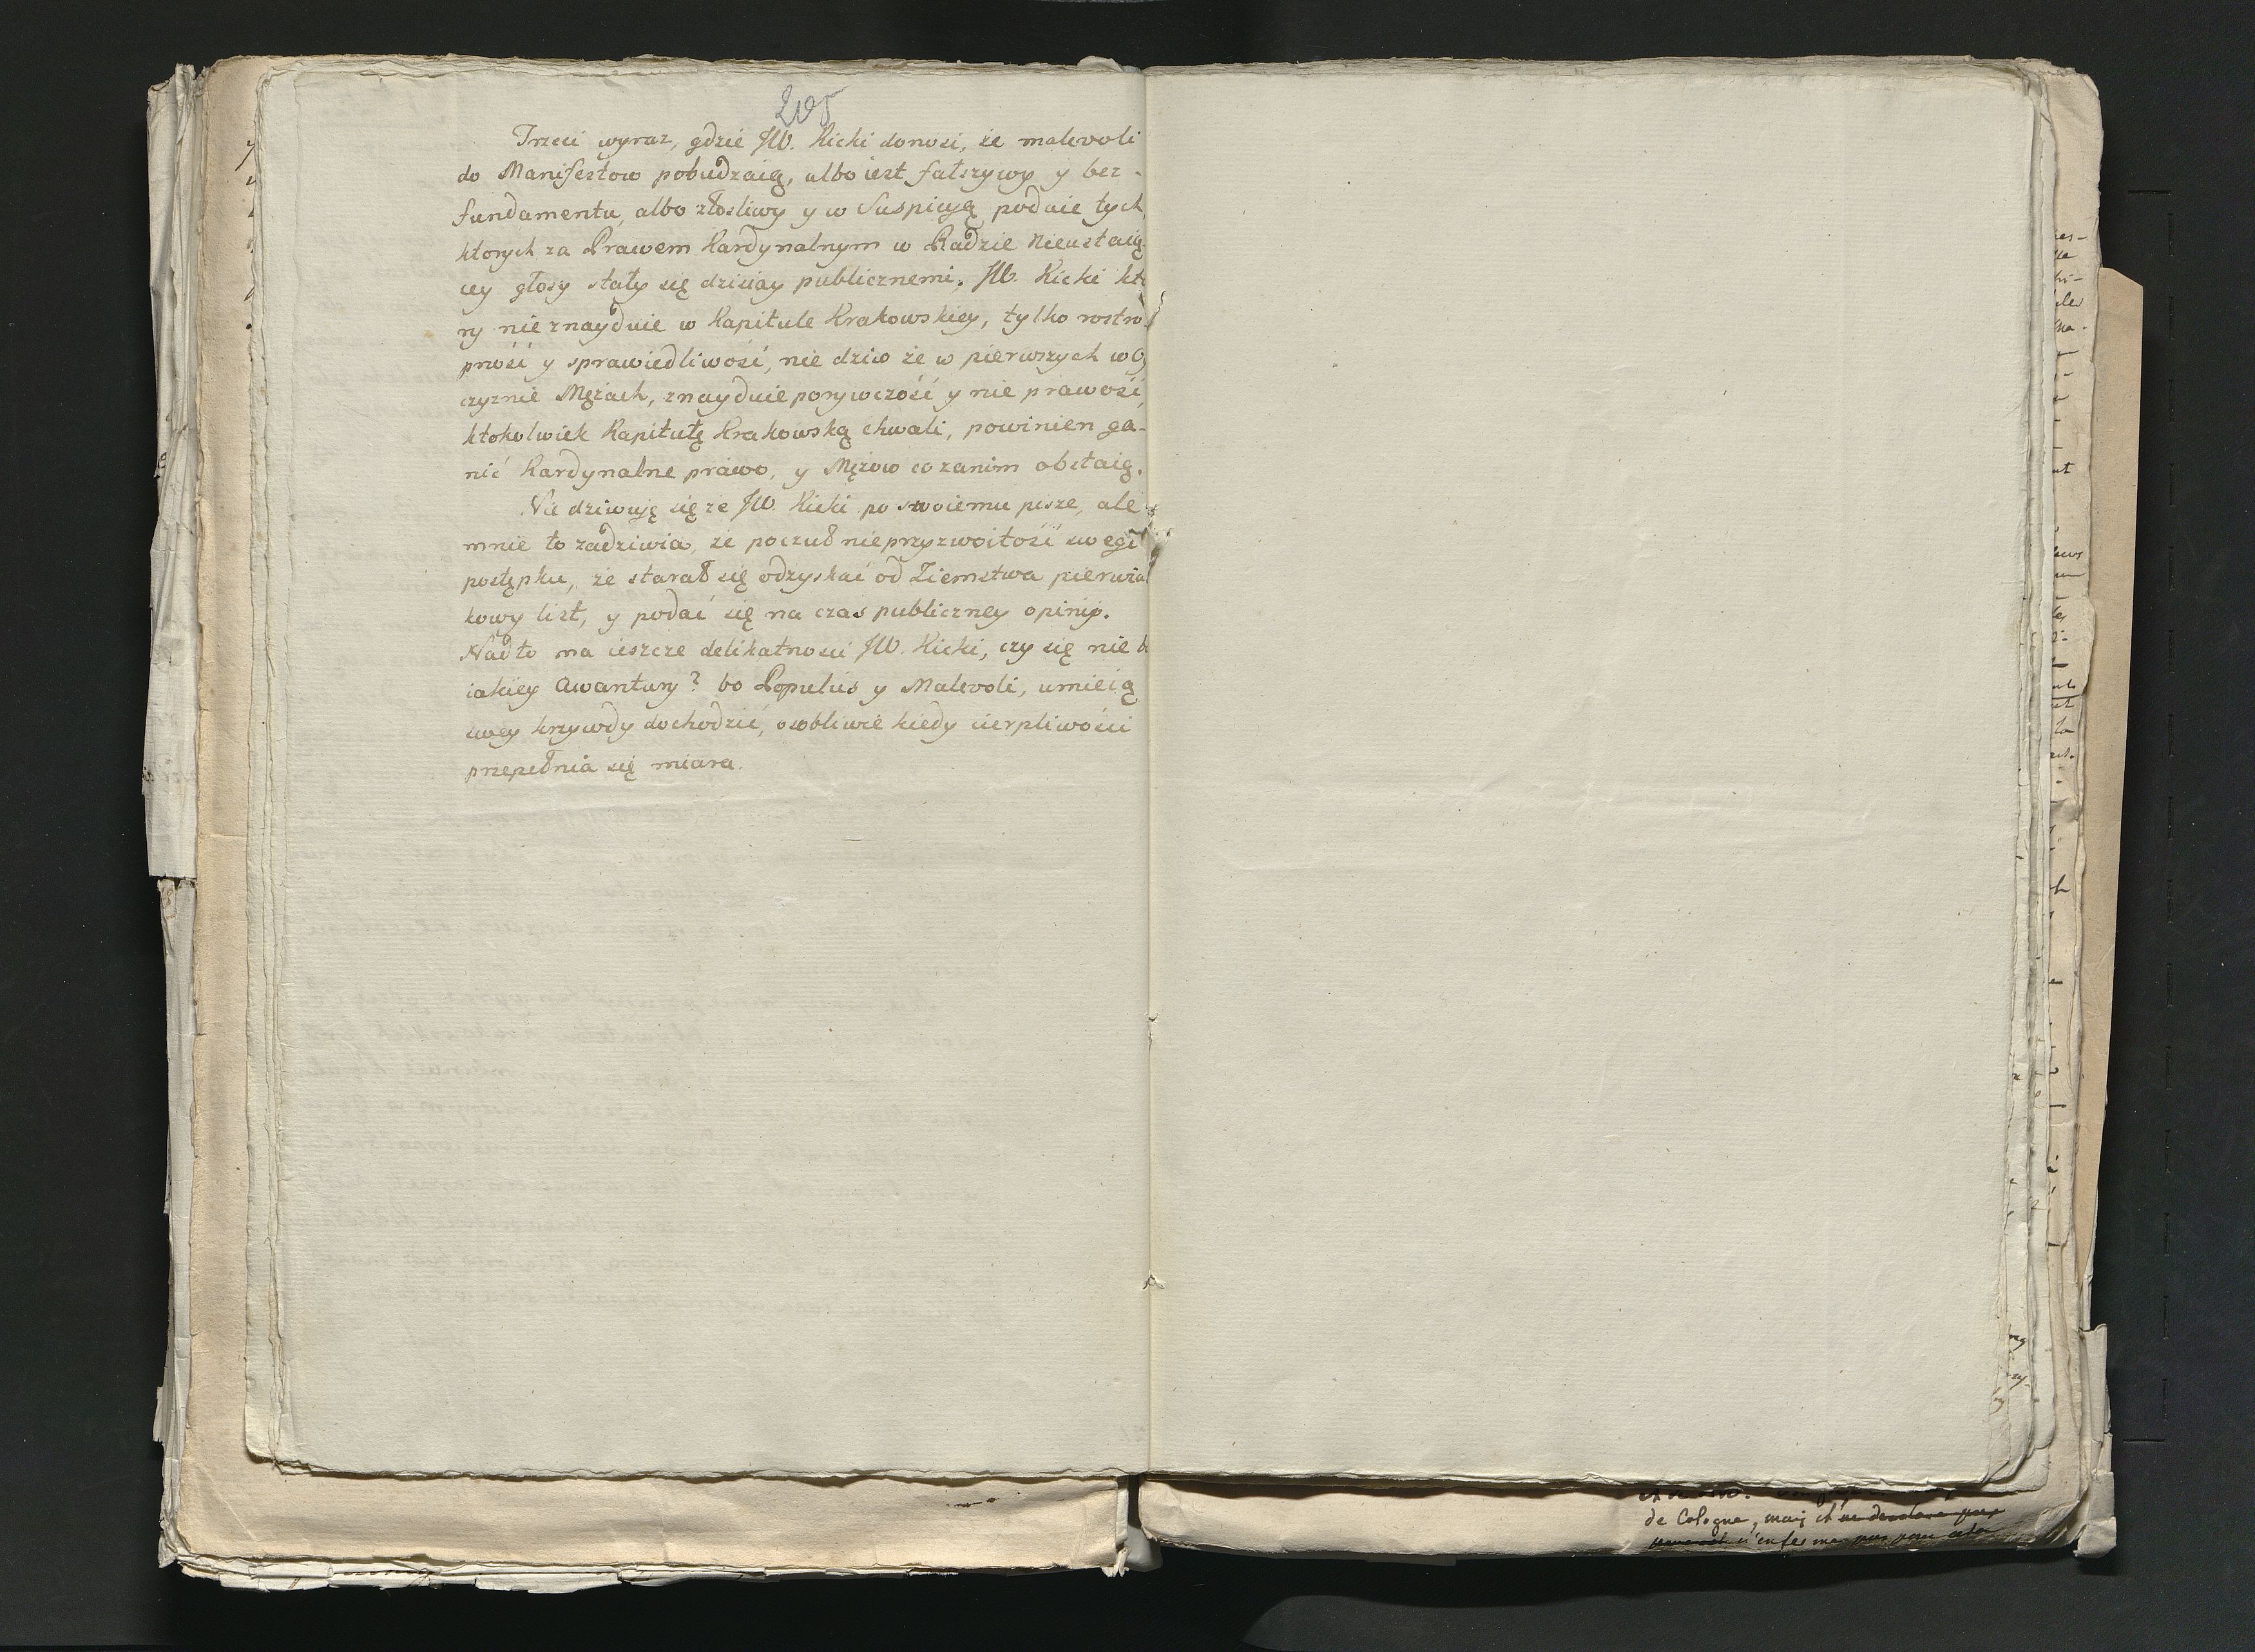 205
Trzeci wyraz, gdzie JW. Kicki donosi, że malevoli
do Manifestow pobudzaią, albo iest fałszywy y bez-
fundamentu, albo złosliwy y w Suspicyą podaie tych,
ktorych za Prawem Kardynalnym w Radzie Nieustaią-
cey głosy stały się dzisiay publicznemi. JW. Kicki kto
ry nie znayduie w Kapitule Krakowskiey, tylko rostro
pność y sprawiedliwość, nie dziw że w pierwszych w Oy
czyznie Mężach, znayduie porywczość y nie prawość,
ktokolwiek Kapitułę Krakowską chwali, powinien ga-
nić Kardynalne prawo, y Mężow co zanim obstaią.
Nie dziwuię się że JW. Kicki po swoiemu pisze, ale
mnie to zadziwia, że poczuł nieprzyzwoitość swego
postępku, że starał się odzyskać od Ziemstwa pierwiast
kowy list, y podać się na czas publiczney opinij.
Nadto ma ieszcze delikatnosci JW. Kicki, czy się nie b
iakiey Awantury? bo Populus y Malevoli, umieią
swey krzywdy dochodzić, osobliwie kiedy cierpliwości
przepełnia się miara.
de Cologne, mais